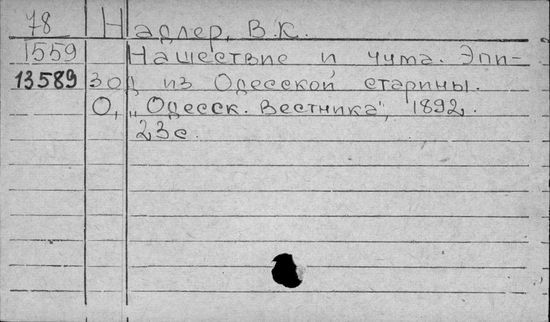 78 Надлер, В.К.
1559 Нашествие и чума. Эпи-
13589 зод из Одесской старины.
О, „Одесск. Вестника", 1892.
23с.